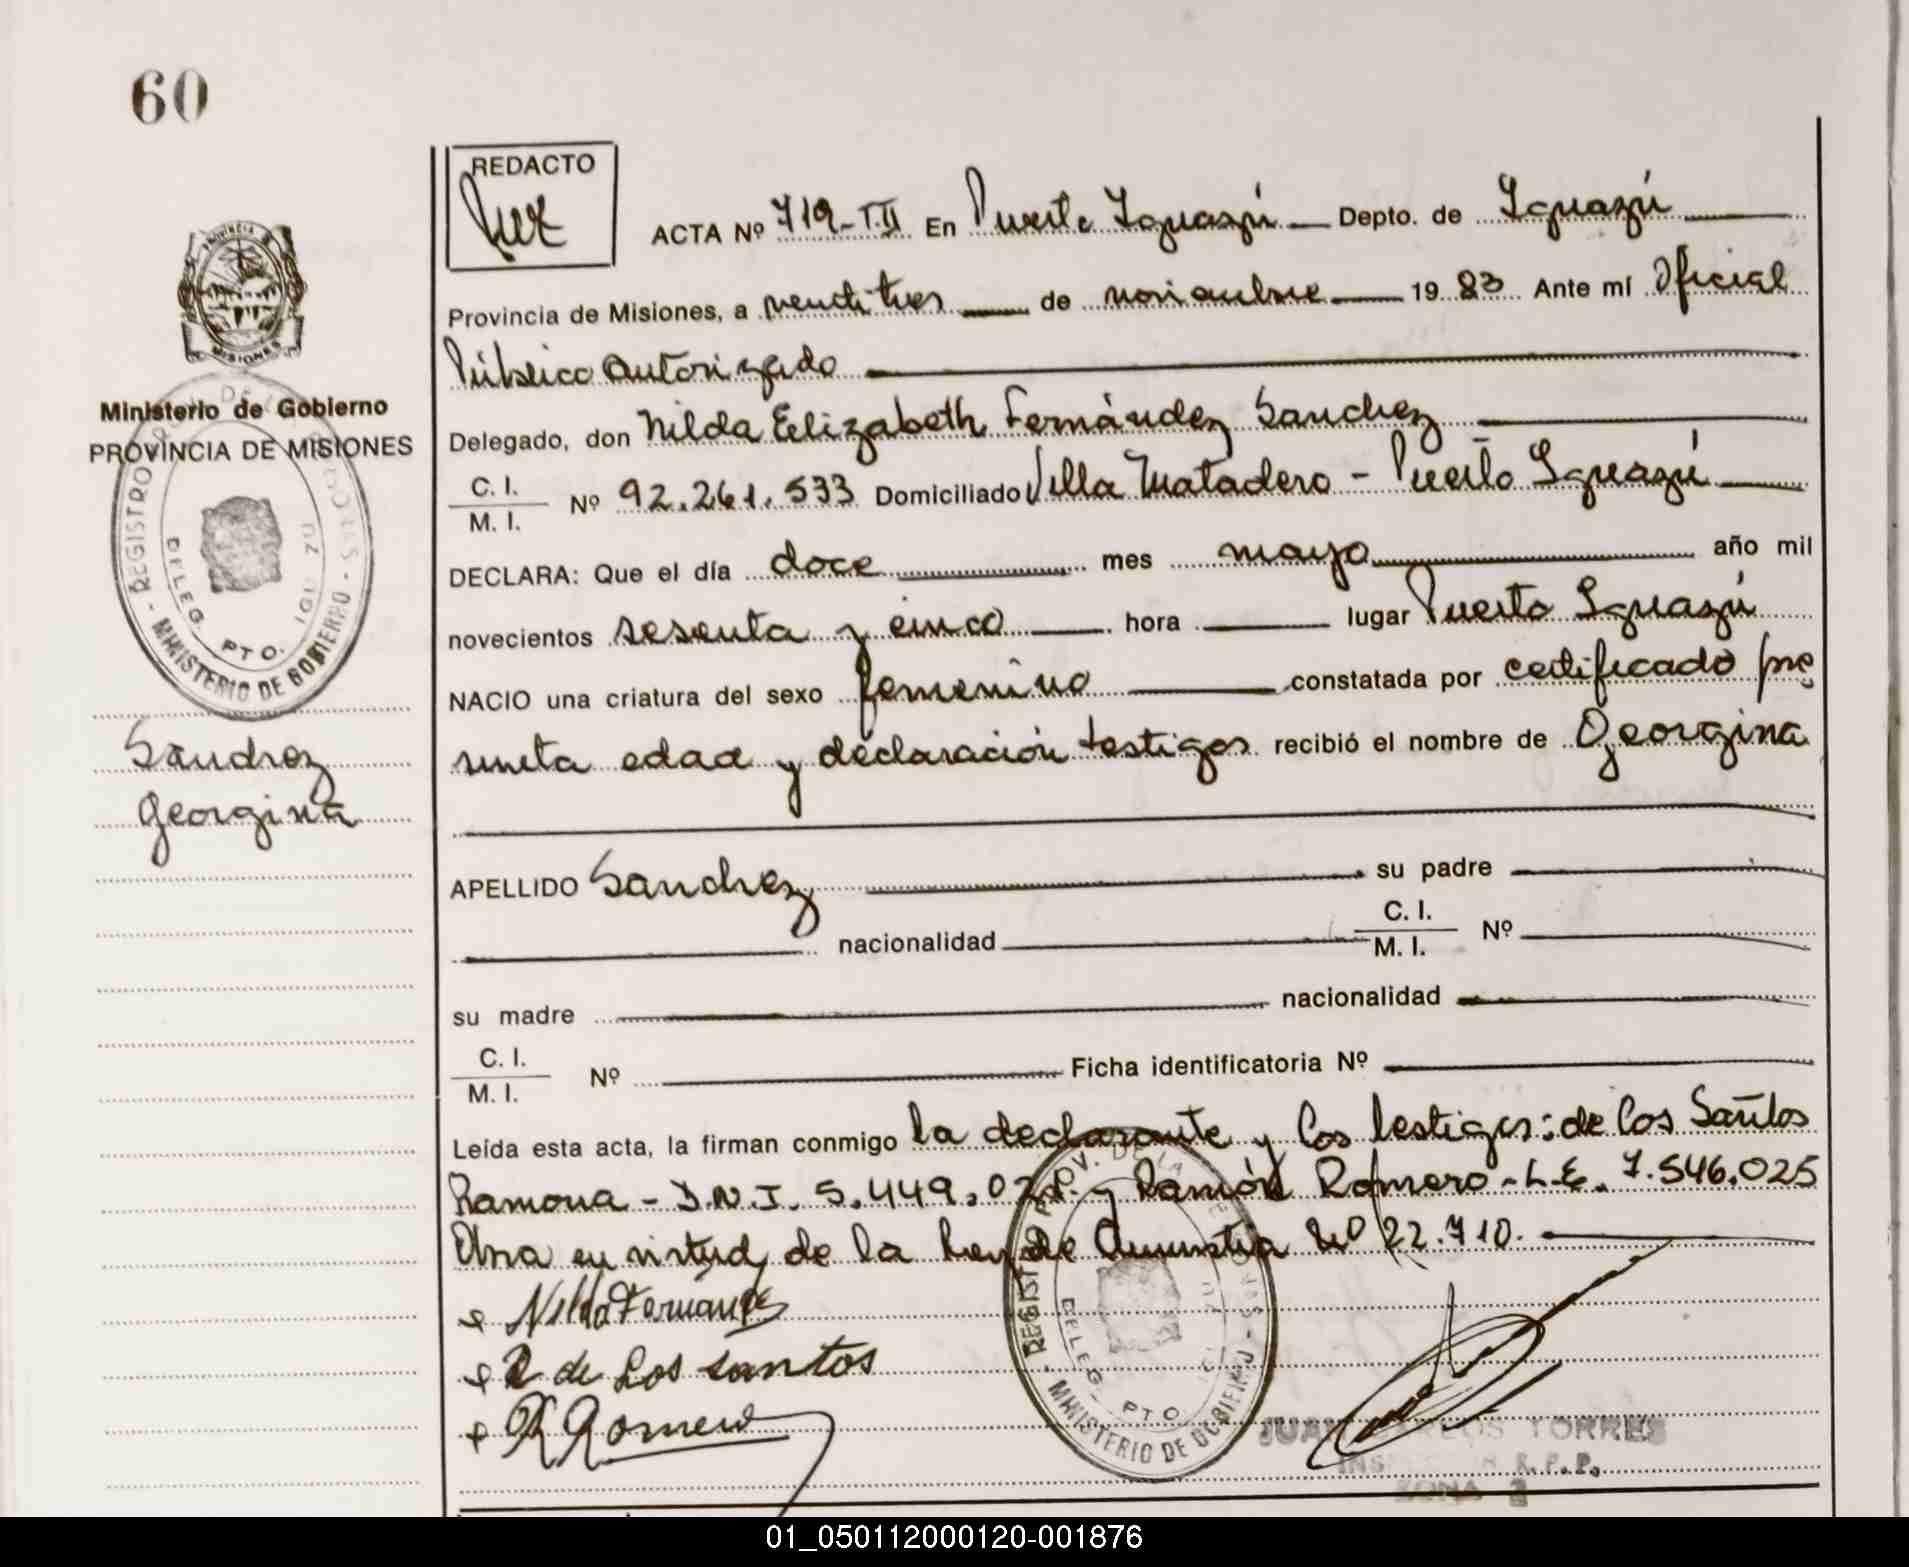 60
REDACTO
ACTA Nº 719-T.II En Puerto Iguazú Depto. de Iguazú
Provincia de Misiones, a veintitres de noviembre 1983 Ante mí Oficial
Público Autorizado
Delegado, don Nilda Elizabeth Fernández Sanchez
C. I.
M. I. Nº 92.261.533 Domiciliado Villa Matadero - Puerto Iguazú
DECLARA: Que el día doce mes mayo año mil
novecientos sesenta y cinco hora lugar Puerto Iguazú
NACIO una criatura del sexo femenino constatada por certificado pre
sunta edad y declaración testigos recibió el nombre de Georgina
APELLIDO Sanchez su padre
nacionalidad C. I.
M. I. Nº
su madre nacionalidad
C. I.
M. I. Nº Ficha identificatoria Nº
Leída esta acta, la firman conmigo la declarante y los testigos: de los Santos
Ramona - D.N.I. 5.449.02 y Ramón Romero - L.E. 7.546.025
en virtud de la Ley de Amnistia Nº 22.710.
Nilda Fernandez
R de Los santos
R Romero
JUAN CARLOS TORRES
R.P.P.
ZONA
PROVINCIA DE
MISIONES
Ministerio de Gobierno
PROVINCIA DE MISIONES
REGISTRO
MINISTERIO DE GOBIERNO
DELEG. PTO. IGUAZU
Sanchez
Georgina
REGIST PROV. DE LA
MINISTERIO DE GOBIERNO
DELEG. PTO
01_050112000120-001876